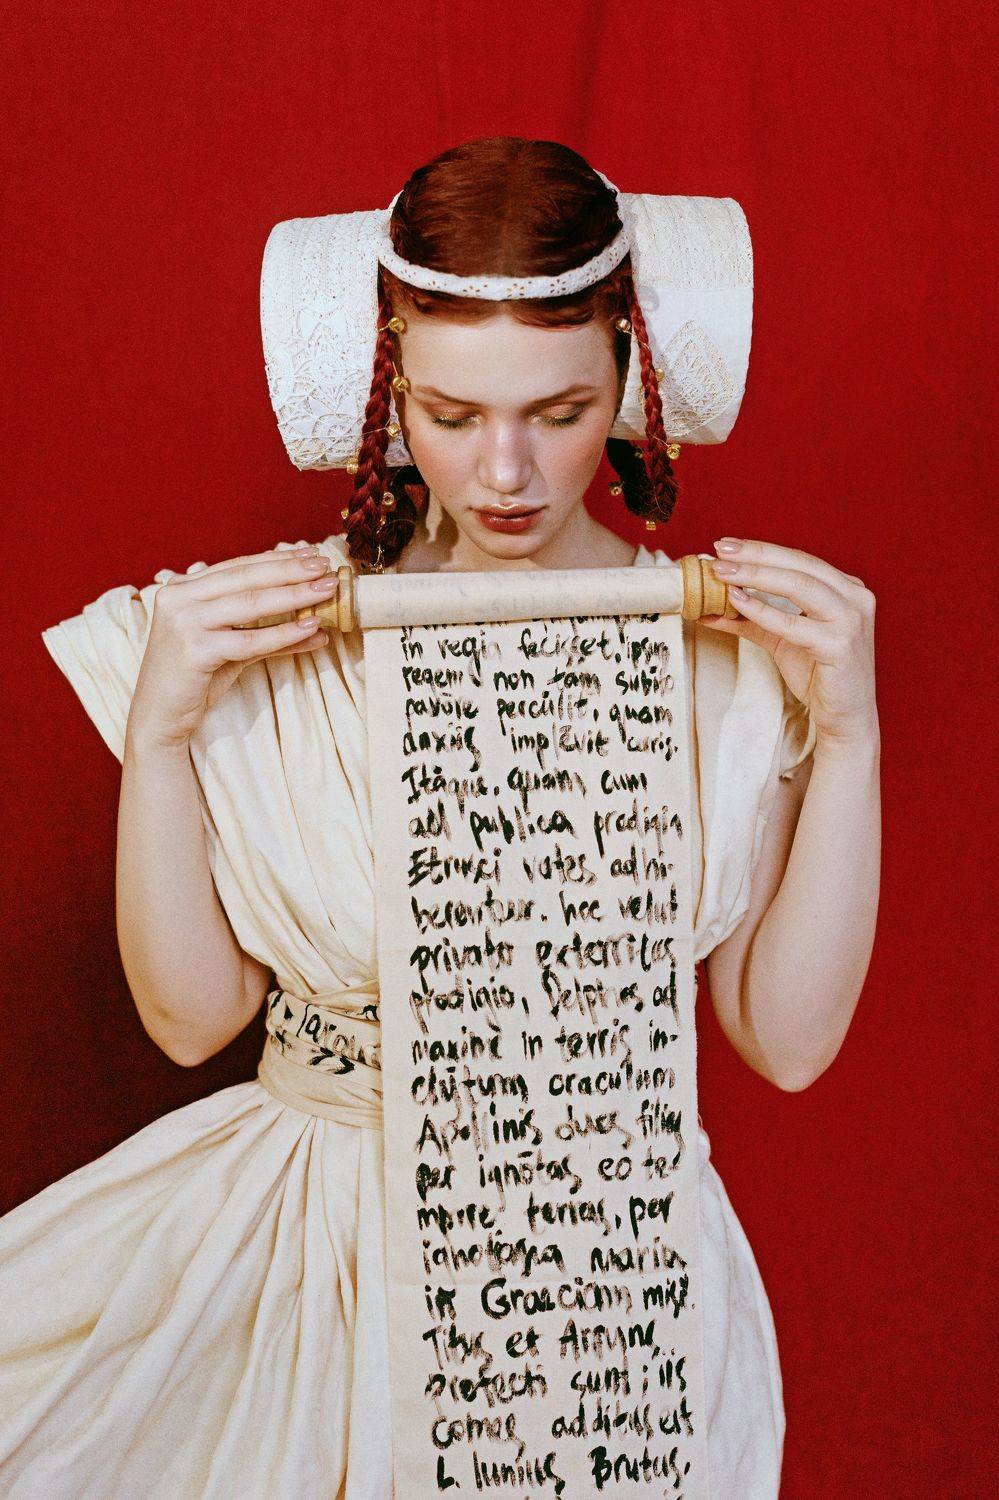 in regia fecisset, ipsius
regem non tam subito
pavōre percŭlit, quam
anxiis implēvit curis.
Ităque, quam cum
ad publica prodigia
Etrusci vates adhi-
berentur, hoc velut
privato exterritus
prodigio, Delphos ad
maxime in terris in-
clĭtum oraculum
Apollinis duos filios
per ignōtas eo te-
mpore terras, per
ignotiora maria
in Graeciam misit.
Titus et Arruns
profecti sunt; iis
comes additus est
L. Iunius Brutus,